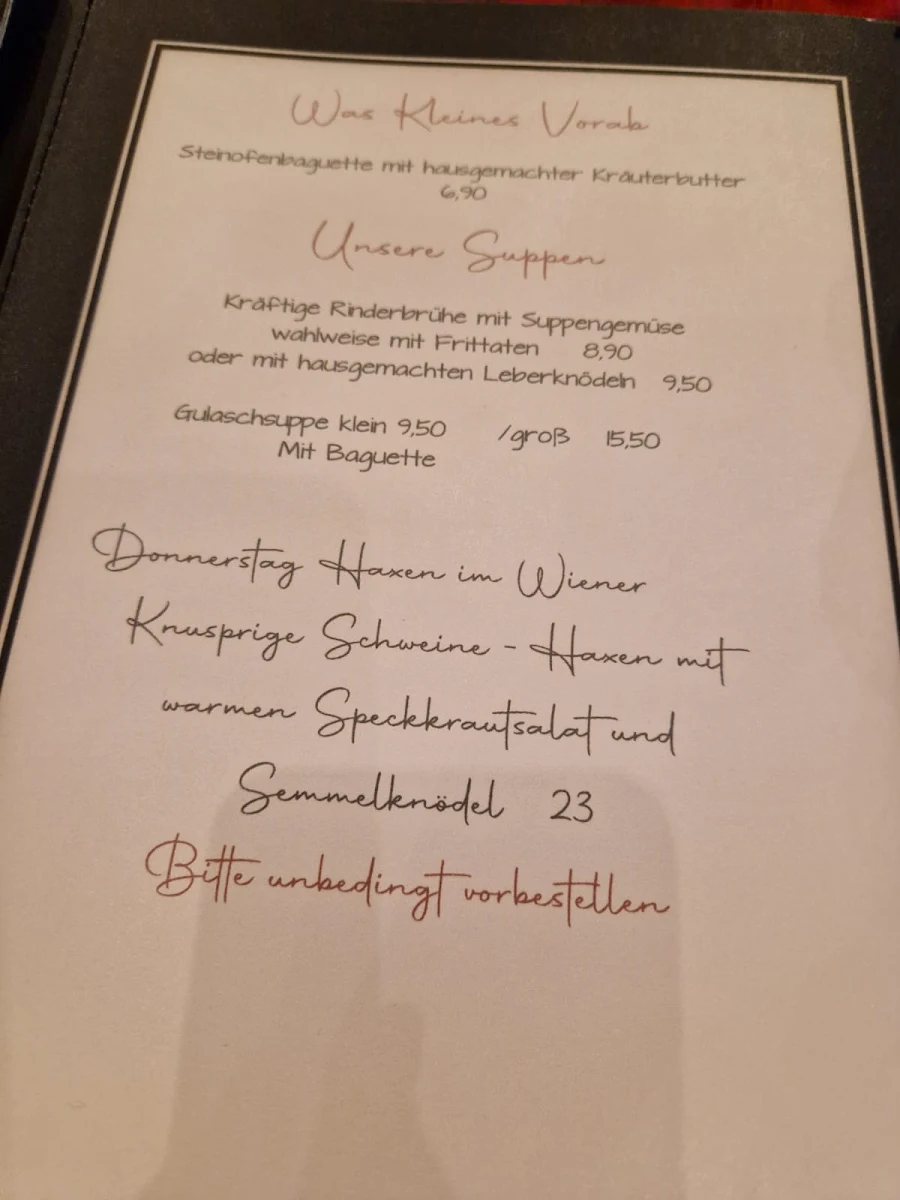 Was Kleines Vorab
Steinofenbaguette mit hausgemachter Kräuterbutter
6,90
Unsere Suppen
Kräftige Rinderbrühe mit Suppengemüse
wahlweise mit Frittaten 8,90
oder mit hausgemachten Leberknödeln 9,50
Gulaschsuppe klein 9,50 /groß 15,50
Mit Baguette
Donnerstag Haxen im Wiener
Knusprige Schweine - Haxen mit
warmen Speckkrautsalat und
Semmelknödel 23
Bitte unbedingt vorbestellen